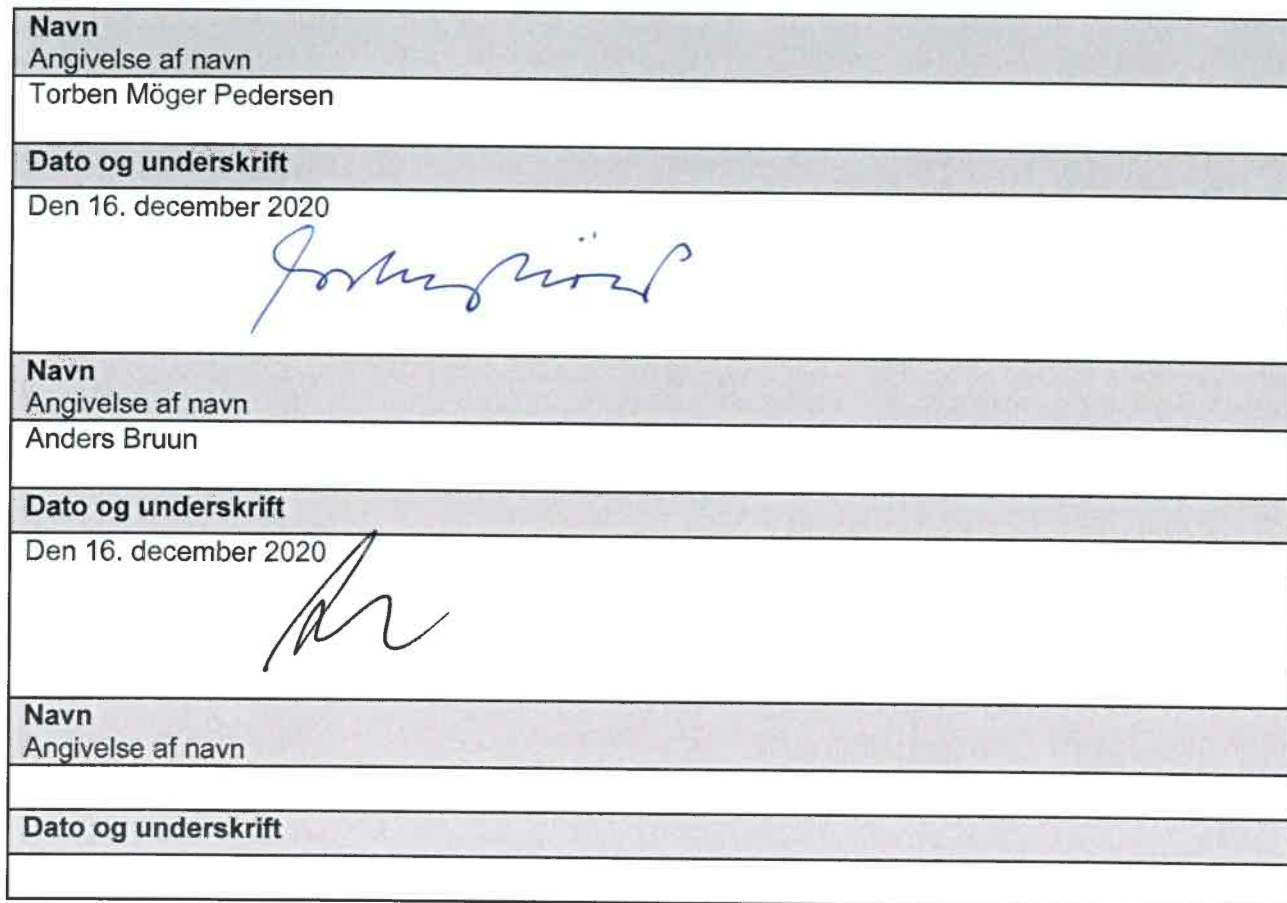 Navn
Angivelse af navn
Torben Möger Pedersen
Dato og underskrift
Den 16. december 2020
Navn
Angivelse af navn
Anders Bruun
Dato og underskrift
Den 16. december 2020
Navn
Angivelse af navn
Dato og underskrift